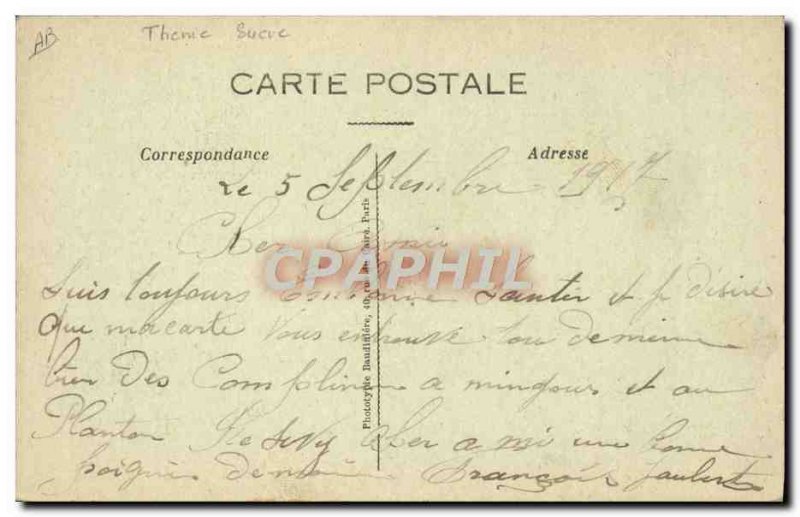 AB
Theme Sucre
CARTE POSTALE
Correspondance
Adresse
Le 5 Septembre 1917
Cher Ami
CPAPHIL
Suis toujours en bonne Santer et je désire
que macarte vous entrouve tou demeime
bien Des Complimen a mingour et au
Planton cher a mi une bonne
poignée demain François Jaubert
Phototypie Baudinière, 40, rue du Caire, Paris